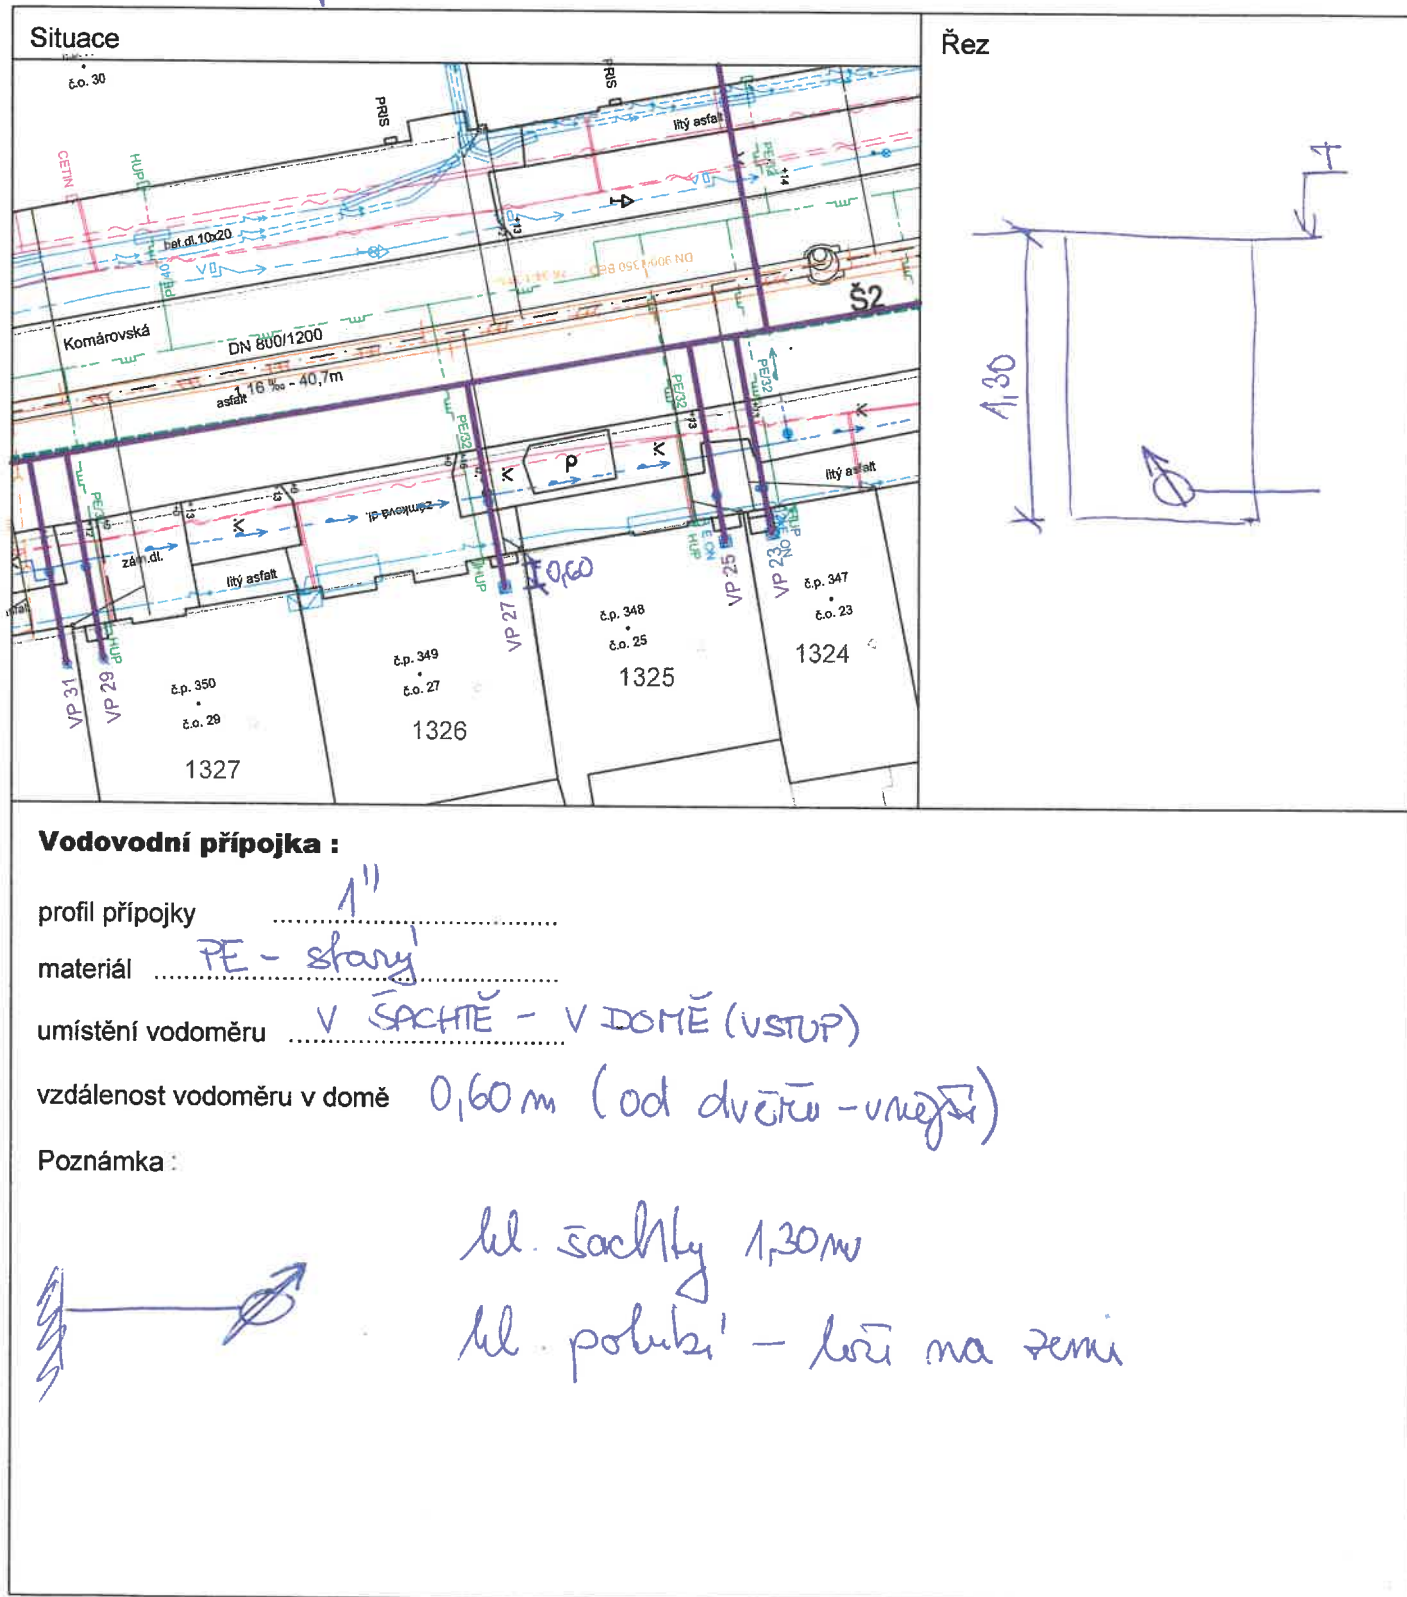 Situace
Řez
č.o. 30
PRIS
PRIS
litý asfalt
CETIN
HUP
PE/32
+14
bet.dl.10x20
PE/40
+13
DN 900/1350 BEO
Š2
Komárovská
DN 800/1200
1,16 ‰ - 40,7m
asfalt
PE/32
PE/32
PE/32
+13
P
litý asfalt
zámková dl.
zám.dl.
litý asfalt
HUP
HUP
HUP
0,60
VP 31
VP 29
VP 27
VP 25
VP 23
č.p. 350
č.o. 29
1327
č.p. 349
č.o. 27
1326
č.p. 348
č.o. 25
1325
č.p. 347
č.o. 23
1324
1,30
Vodovodní přípojka :
profil přípojky 1"
materiál PE - starý
umístění vodoměru V ŠACHTĚ - V DOMĚ (VSTUP)
vzdálenost vodoměru v domě 0,60 m (od dveří - vnější)
Poznámka :
hl. šachty 1,30 m
hl. potrubí - leží na zemi